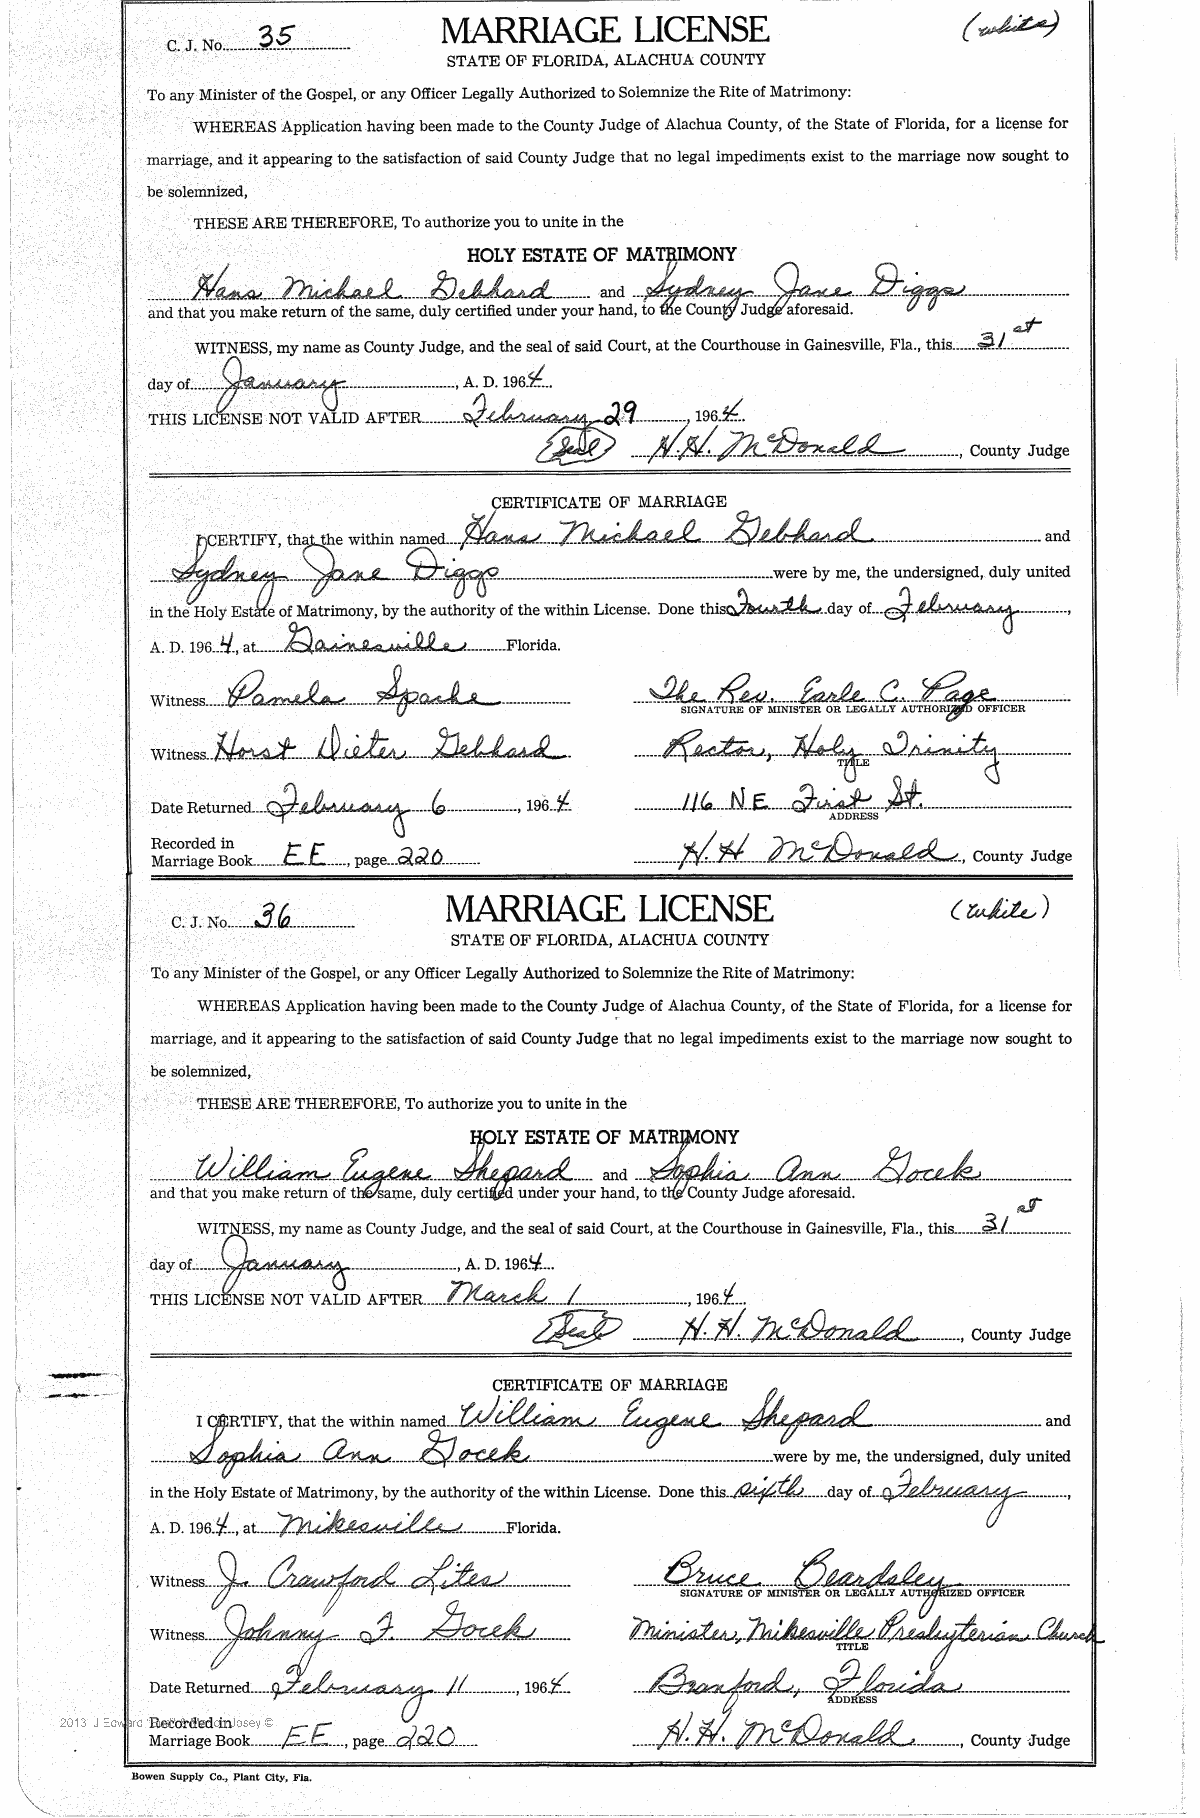 C. J. No. 35 MARRIAGE LICENSE (white)
STATE OF FLORIDA, ALACHUA COUNTY
To any Minister of the Gospel, or any Officer Legally Authorized to Solemnize the Rite of Matrimony:
WHEREAS Application having been made to the County Judge of Alachua County, of the State of Florida, for a license for
marriage, and it appearing to the satisfaction of said County Judge that no legal impediments exist to the marriage now sought to
be solemnized,
THESE ARE THEREFORE, To authorize you to unite in the
HOLY ESTATE OF MATRIMONY
Hans Michael Gebhard and Sydney Jane Diggs
and that you make return of the same, duly certified under your hand, to the County Judge aforesaid.
WITNESS, my name as County Judge, and the seal of said Court, at the Courthouse in Gainesville, Fla., this 31st
day of January, A. D. 1964
THIS LICENSE NOT VALID AFTER February 29, 1964
(Seal) H. H. McDonald, County Judge
CERTIFICATE OF MARRIAGE
I CERTIFY, that the within named Hans Michael Gebhard and
Sydney Jane Diggs were by me, the undersigned, duly united
in the Holy Estate of Matrimony, by the authority of the within License. Done this Fourth day of February,
A. D. 1964, at Gainesville Florida.
Witness Pamela Spache The Rev. Earle C. Page
SIGNATURE OF MINISTER OR LEGALLY AUTHORIZED OFFICER
Witness Horst Dieter Gebhard Rector, Holy Trinity
TITLE
Date Returned February 6, 1964 116 NE First St.
ADDRESS
Recorded in
Marriage Book EE, page 220 H. H McDonald, County Judge
C. J. No. 36 MARRIAGE LICENSE (white)
STATE OF FLORIDA, ALACHUA COUNTY
To any Minister of the Gospel, or any Officer Legally Authorized to Solemnize the Rite of Matrimony:
WHEREAS Application having been made to the County Judge of Alachua County, of the State of Florida, for a license for
marriage, and it appearing to the satisfaction of said County Judge that no legal impediments exist to the marriage now sought to
be solemnized,
THESE ARE THEREFORE, To authorize you to unite in the
HOLY ESTATE OF MATRIMONY
William Eugene Shepard and Sophia Ann Gocek
and that you make return of the same, duly certified under your hand, to the County Judge aforesaid.
WITNESS, my name as County Judge, and the seal of said Court, at the Courthouse in Gainesville, Fla., this 31st
day of January, A. D. 1964
THIS LICENSE NOT VALID AFTER March 1, 1964
(Seal) H. H. McDonald, County Judge
CERTIFICATE OF MARRIAGE
I CERTIFY, that the within named William Eugene Shepard and
Sophia Ann Gocek were by me, the undersigned, duly united
in the Holy Estate of Matrimony, by the authority of the within License. Done this sixth day of February,
A. D. 1964, at Mikesville Florida.
Witness J. Crawford Lites Bruce Beardsley
SIGNATURE OF MINISTER OR LEGALLY AUTHORIZED OFFICER
Witness Johnny F. Gocek Minister, Mikesville Presbyterian Church
TITLE
Date Returned February 11, 1964 Branford, Florida
ADDRESS
2013 J Edward Josey ©
Recorded in
Marriage Book EE, page 220 H. H. McDonald, County Judge
Bowen Supply Co., Plant City, Fla.